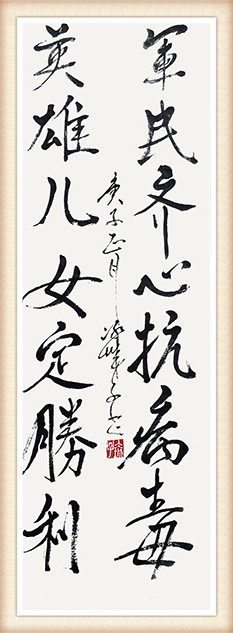 軍民齐心抗病毒
英雄儿女定勝利
庚子正月